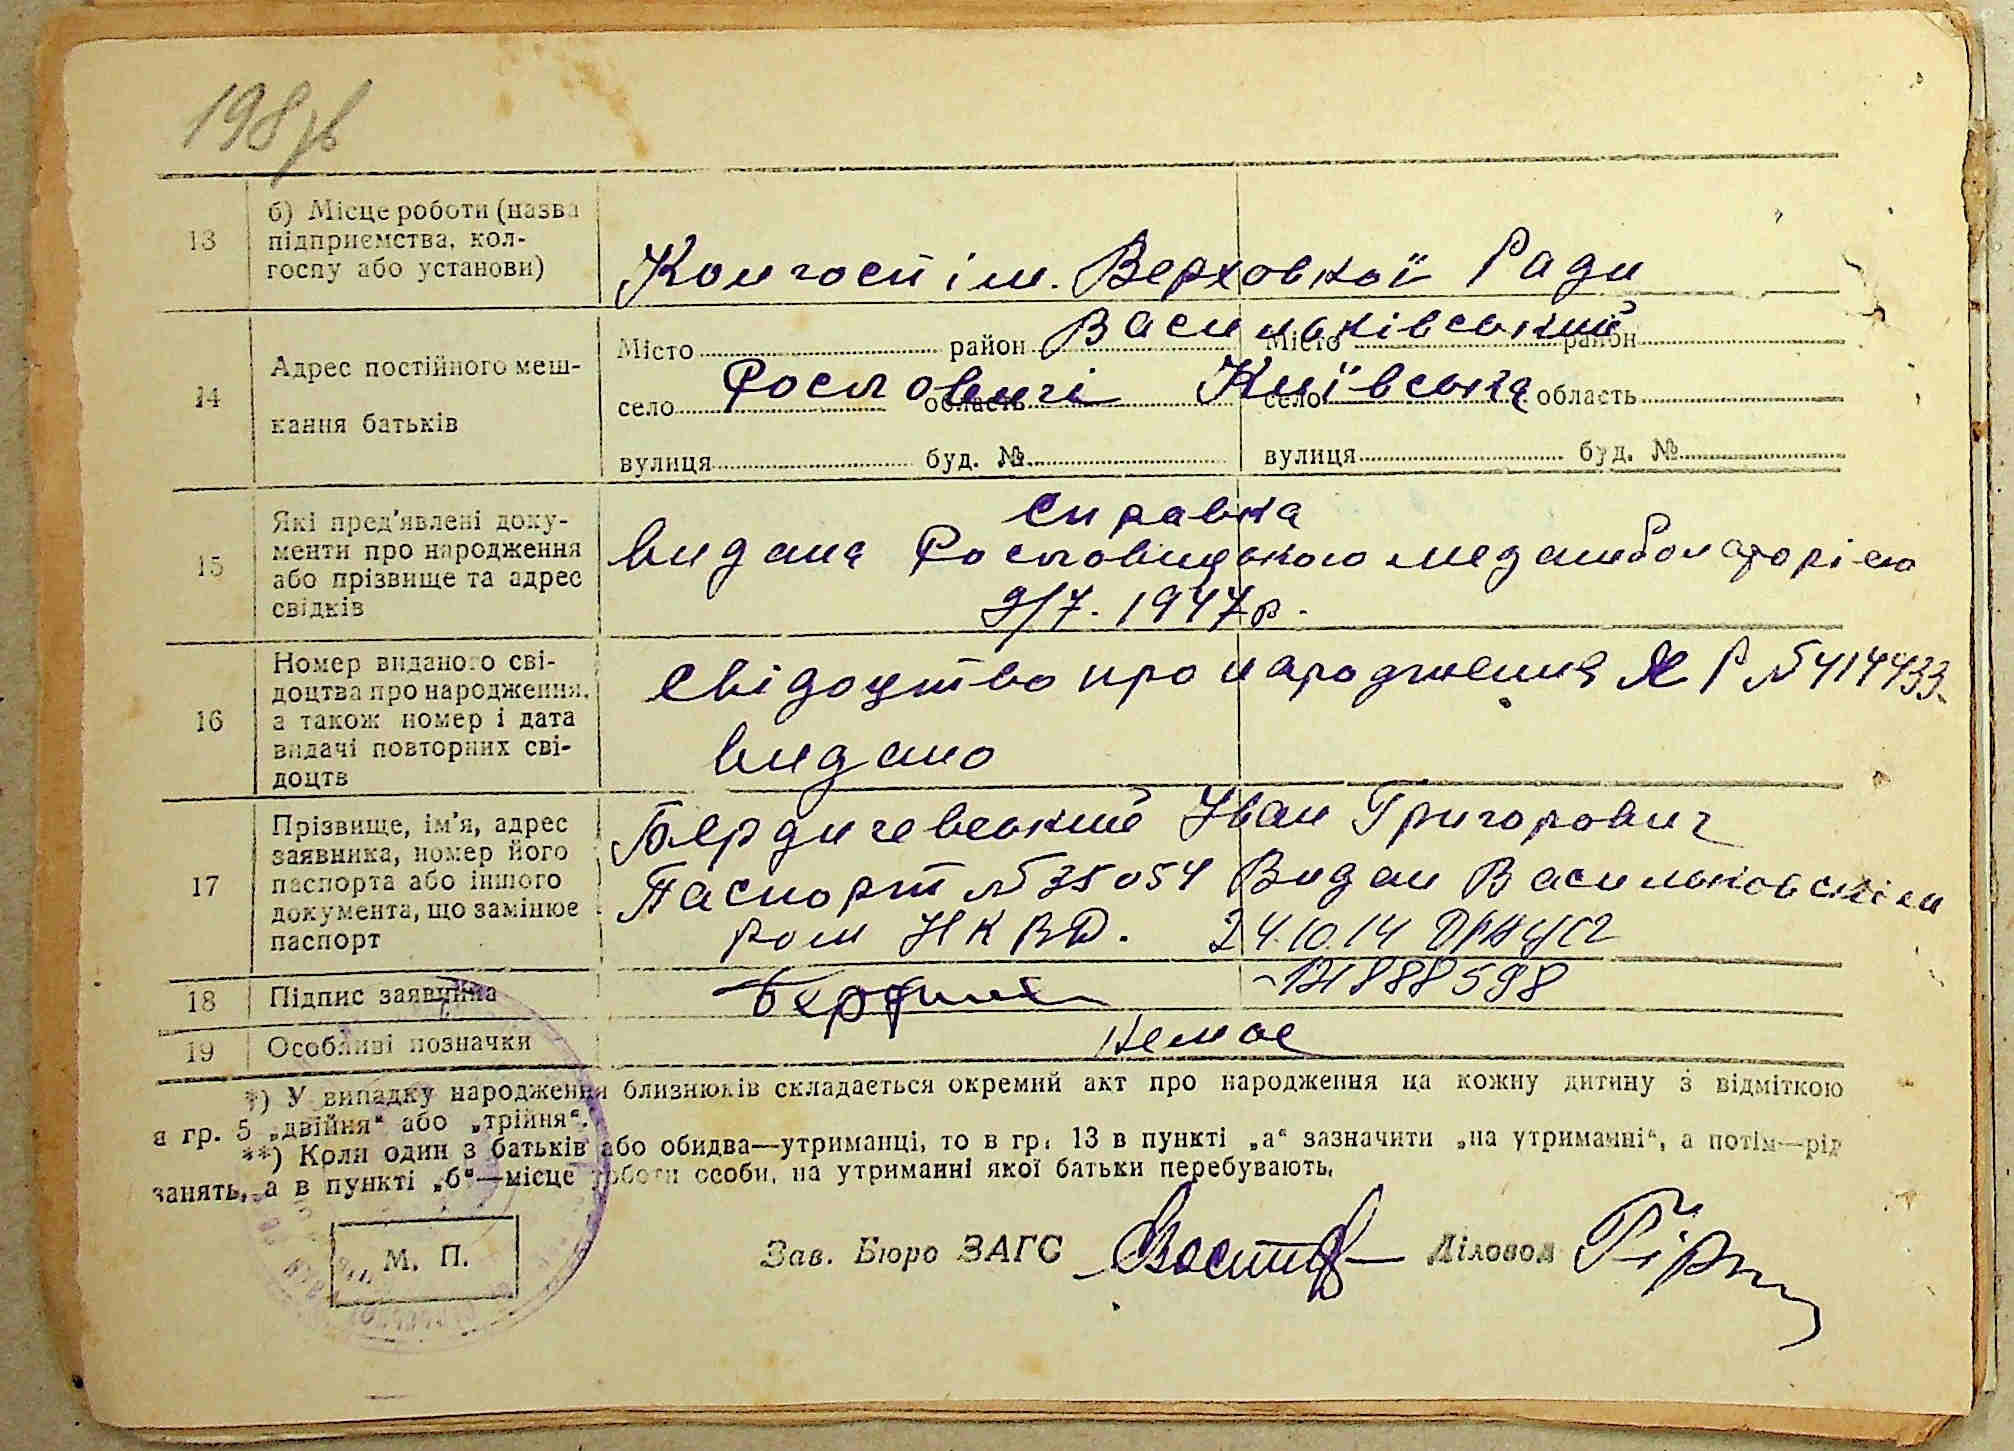 198 зв
13 б) Місце роботи (назва
підприємства, кол-
госпу або установи)
Колгосп ім. Верховної Ради
14 Адрес постійного меш-
кання батьків
Місто район Васильківський Місто район
село область Київська село область
вулиця буд. № вулиця буд. №
15 Які пред'явлені доку-
менти про народження
або прізвище та адрес
свідків
справка
видана медамболаторією
9/7. 1947 р.
16 Номер виданого сві-
доцтва про народження,
а також номер і дата
видачі повторних сві-
доцтв
свідоцтво про народження Р № 414433
видано
17 Прізвище, ім'я, адрес
заявника, номер його
паспорта або іншого
документа, що замінює
паспорт
Бердичевський Іван Григорович
Паспорт № 35054 Видан Васильковским
ром НКВД. 24.10.14
18 Підпис заявника
19 Особливі позначки немає
*) У випадку народження близнюків складається окремий акт про народження на кожну дитину з відміткою
в гр. 5 „двійня“ або „трійня“.
**) Коли один з батьків або обидва—утриманці, то в гр. 13 в пункті „а“ зазначити „на утриманні“, а потім—рід
занять, а в пункті „б“—місце роботи особи, на утриманні якої батьки перебувають.
Зав. Бюро ЗАГС Діловод
М. П.